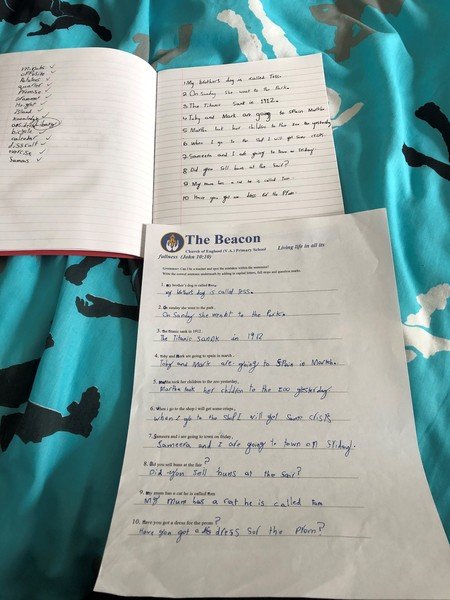 minute
opposite
Potatoes
quarter
Promise
Island
knowledge
bicycle
calendar
difficult
exercise
1. My brother's dog is called Jess.
2. On Sunday she went to the Park.
3. The Titanic Sank in 1912.
4. Toby and Mark are going to Spain in
5. Martha her children to the zoo yesterday
6. When I go to the Shop I will get Some crisps.
7. Sameera and I are going to town on Friday.
8. Did you sell buns at the fair?
9. My mum has a cat he is called Tom
10. Have you got a dress for the Prom.
The Beacon
Church of England (V.A.) Primary School
Living life in all its
fullness (John 10:10)
Grammar: Can I be a teacher and spot the mistakes within the sentences?
Write the correct sentence underneath by adding in capital letters, full stops and question marks.
1. my brother's dog is called
my brothers dog is called Jess.
2. On sunday she went to the park.
On Sunday she went to the Park.
3. the titanic sank in 1912.
The Titanic Sank in 1912
4. Toby and Mark are going to spain in march.
Toby and Mark are going to Spain in
5. Martha took her children to the zoo yesterday.
Martha took her children to the zoo yesterday.
6. When i go to the shop i will get some crisps.
When I go to the Shop I will get Some
7. Sameera and i are going to town on friday.
Sameera and I are going to town on
8. Did you sell buns at the fair?
Did you sell buns at the fair?
9. My mum has a cat he is called
My mum has a cat he is called Tom
10. Have you got a dress for the prom?
Have you got a dress for the Prom?